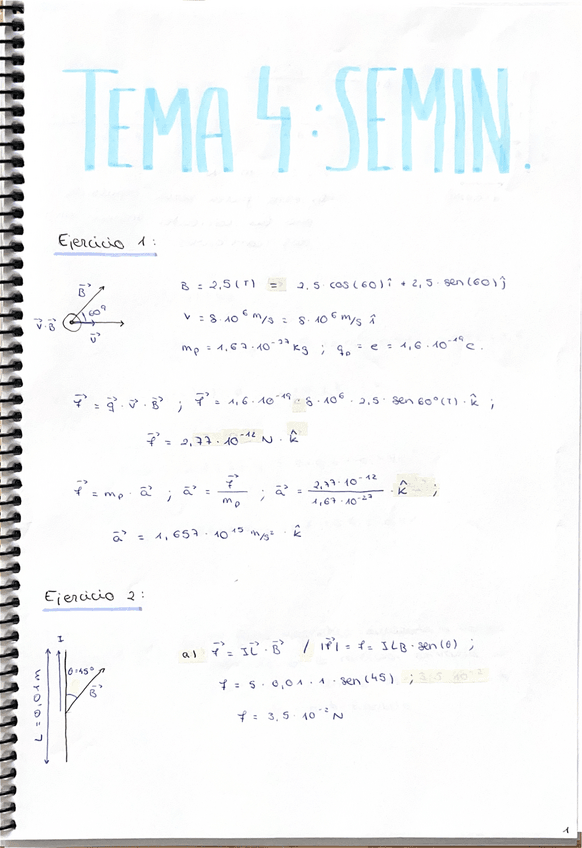 TEMA 4: SEMIN.
Ejercicio 1:
B = 2,5 (T) = 2,5·cos(60) î + 2,5·sen(60) ĵ
B⃗
60º
v⃗·B⃗
v⃗
V = 8·10⁶ m/s = 8·10⁶ m/s î
mp = 1,67·10⁻²⁷ kg ; qp = e = 1,6·10⁻¹⁹ C.
F⃗ = q⃗·v⃗·B⃗ ; F⃗ = 1,6·10⁻¹⁹·8·10⁶·2,5·sen 60º (T)·k̂ ;
F⃗ = 2,77·10⁻¹² N·k̂
F⃗ = mp·a⃗ ; a⃗ = F⃗/mp ; a⃗ = 2,77·10⁻¹²/1,67·10⁻²⁷ · k̂ ;
a⃗ = 1,657·10¹⁵ m/s²·k̂
Ejercicio 2:
I
θ=45º
B⃗
L = 0,01 m
a) F⃗ = IL⃗·B⃗ / |F⃗| = F = ILB·sen(θ) ;
F = 5·0,01·1·sen(45) ; 3,5·10⁻²
F = 3,5·10⁻² N
1